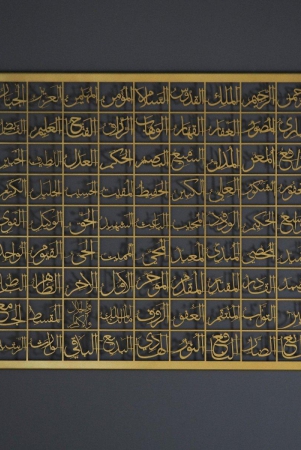 الرحيم الملك القدوس السلام المؤمن المهيمن العزيز الجبار
المصور الغفار القهار الوهاب الرزاق الفتاح العليم القابض
المعز المذل السميع البصير الحكم العدل اللطيف الخبير
الشكور العلي الكبير الحفيظ المقيت الحسيب الجليل الكريم
الحكيم الودود المجيد الباعث الشهيد الحق الوكيل القوي
المحصي المبدئ المعيد المحيي المميت الحي القيوم الواجد
القادر المقتدر المقدم المؤخر الأول الآخر الظاهر الباطن
التواب المنتقم العفو الرؤوف مالك الملك المقسط الجامع
الضار النافع النور الهادي البديع الباقي الوارث الرشيد